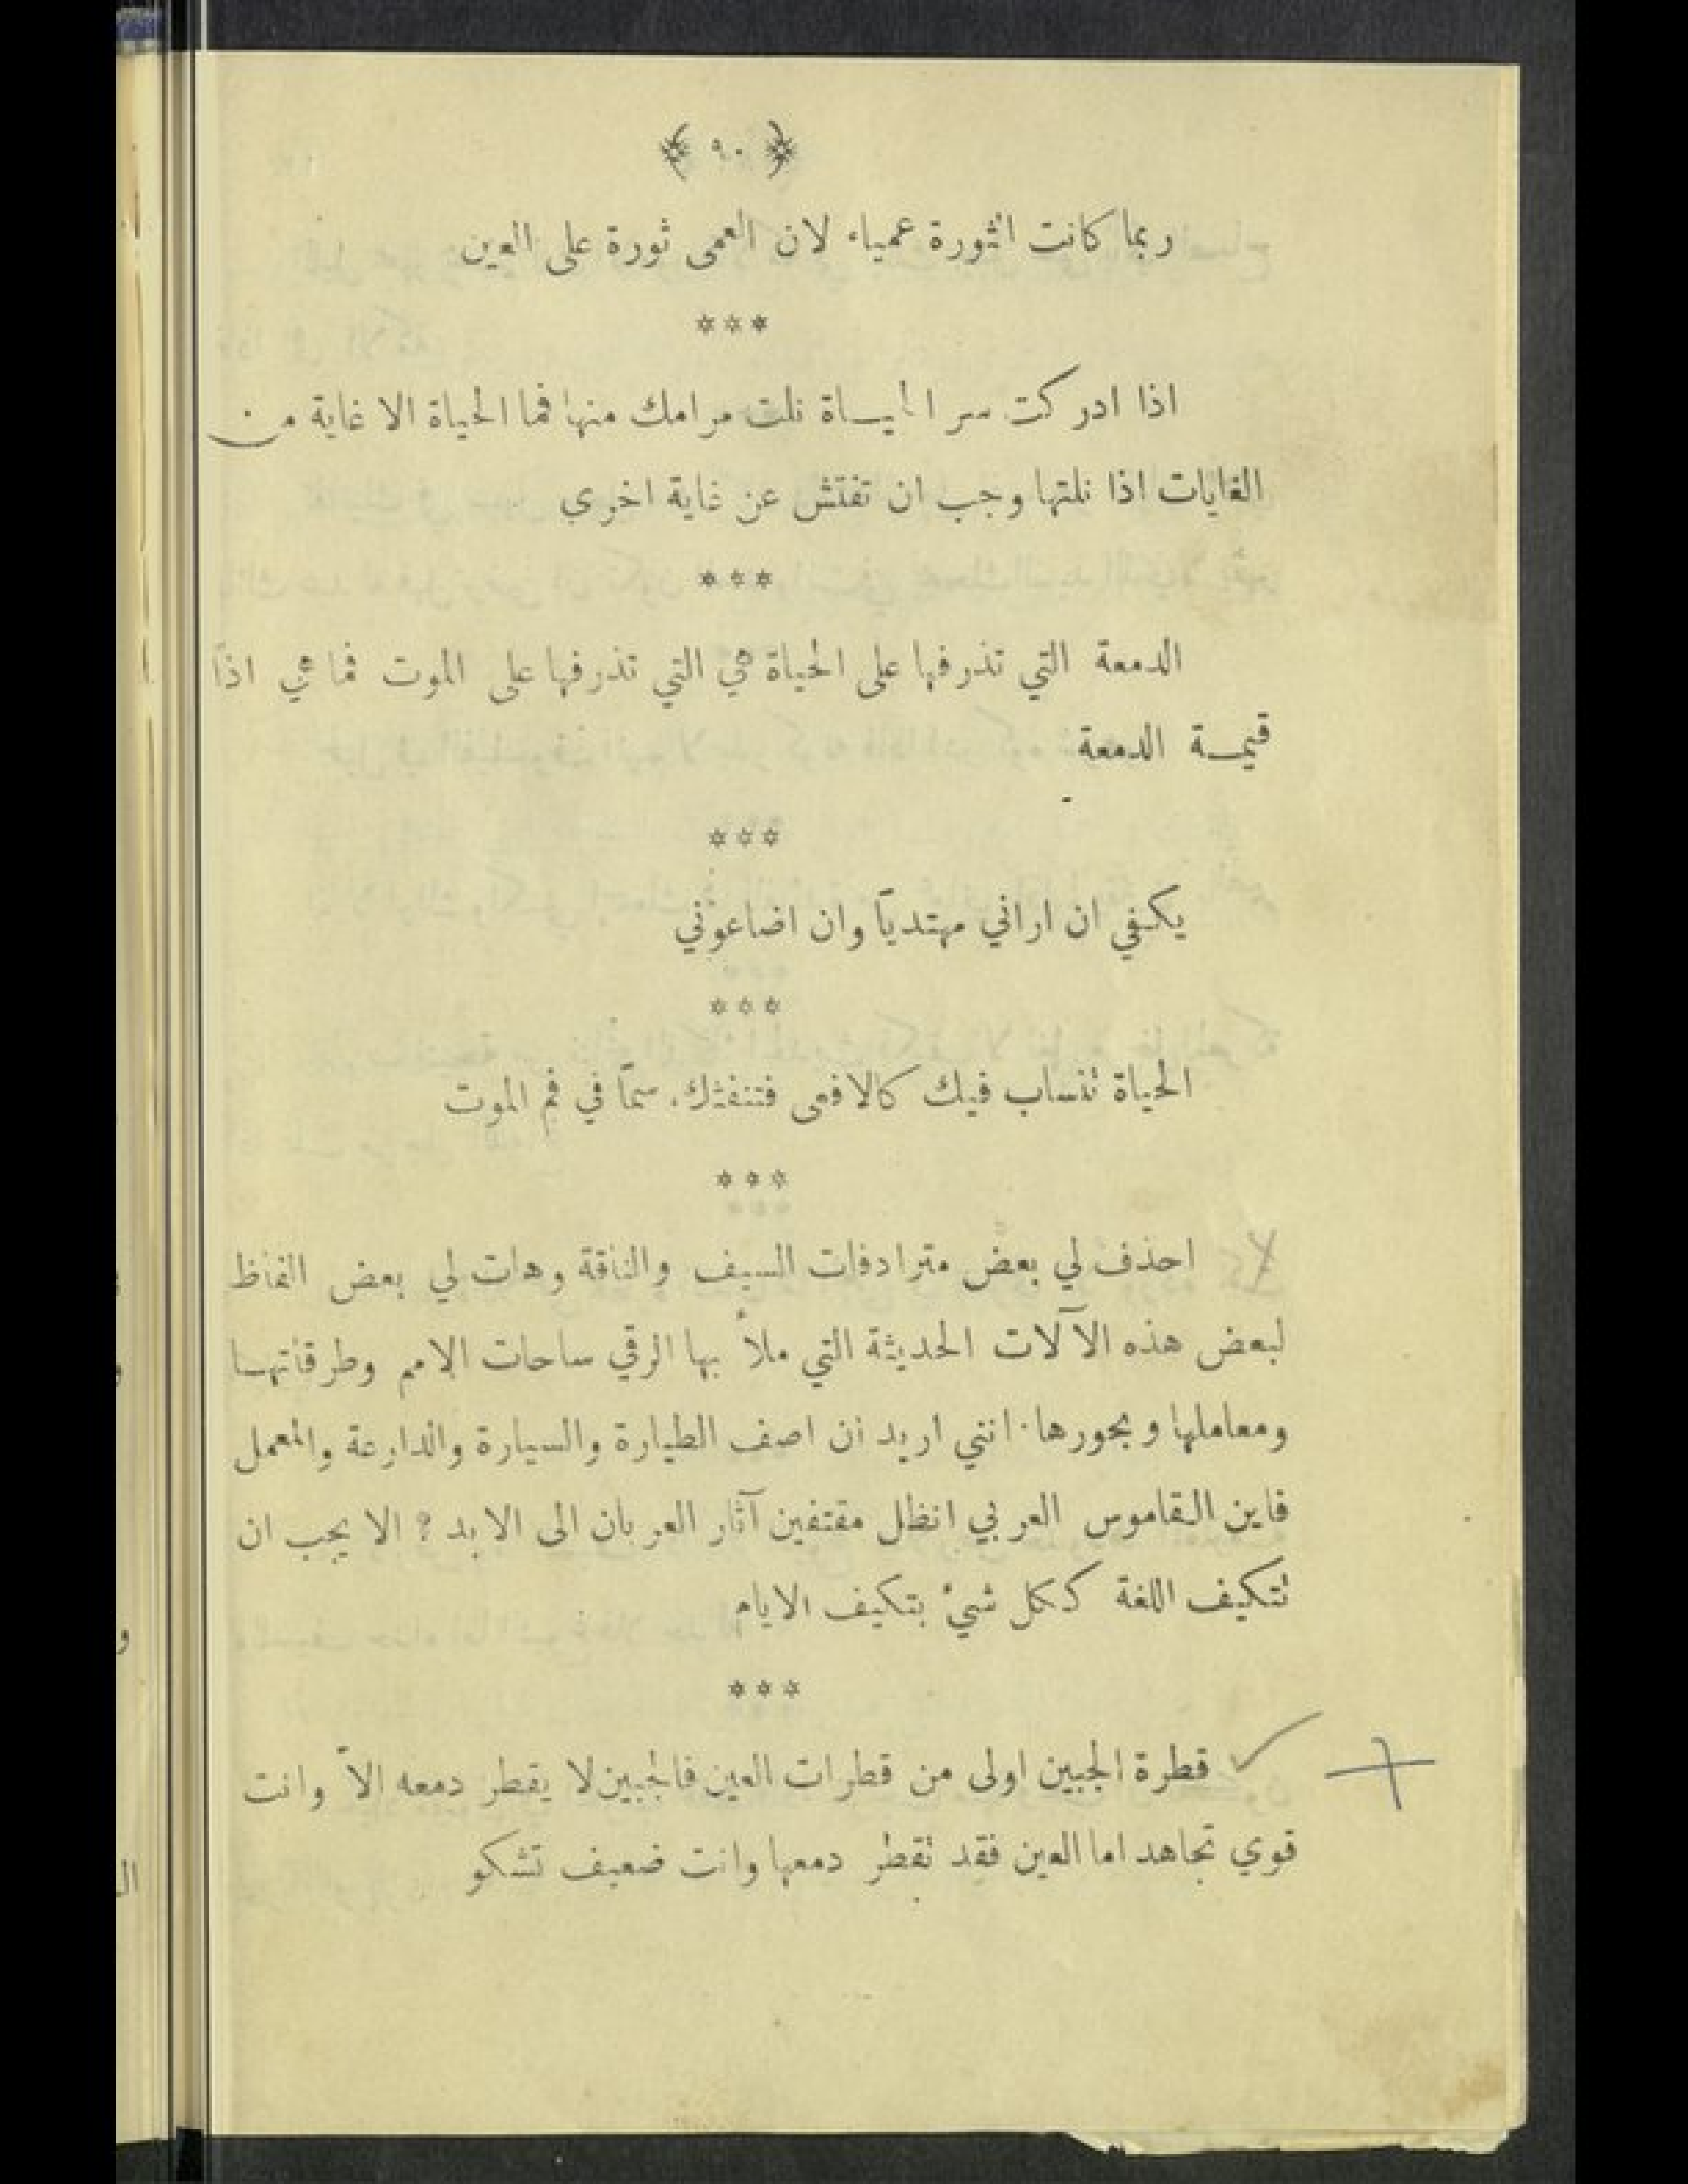 ٩٠
ربما كانت الثورة عمياء لان العمى ثورة على العين
***
اذا ادركت سر الحياة نلت مرامك منها فما الحياة الا غاية من
الغايات اذا نلتها وجب ان تفتش عن غاية اخرى
***
الدمعة التي تذرفها على الحياة هي التي تذرفها على الموت فما هي اذاً
قيمة الدمعة
***
يكفي ان اراني مهتدياً وان اضاعوني
***
الحياة تنساب فيك كالافعى فتنفثك سمّاً في فم الموت
***
احذف لي بعض مترادفات السيف والناقة وهات لي بعض الفاظ
لبعض هذه الآلات الحديثة التي ملأ بها الرقي ساحات الامم وطرقاتها
ومعاملها وبحورها. انني اريد ان اصف الطيارة والسيارة والدارعة والمعمل
فاين القاموس العربي انظل مقتفين آثار العربان الى الابد ? الا يجب ان
تتكيف اللغة ككل شيء بتكيف الايام
***
قطرة الجبين اولى من قطرات العين فالجبين لا يقطر دمعه الاّ وانت
قوي تجاهد اما العين فقد تقطر دمعها وانت ضعيف تشكو